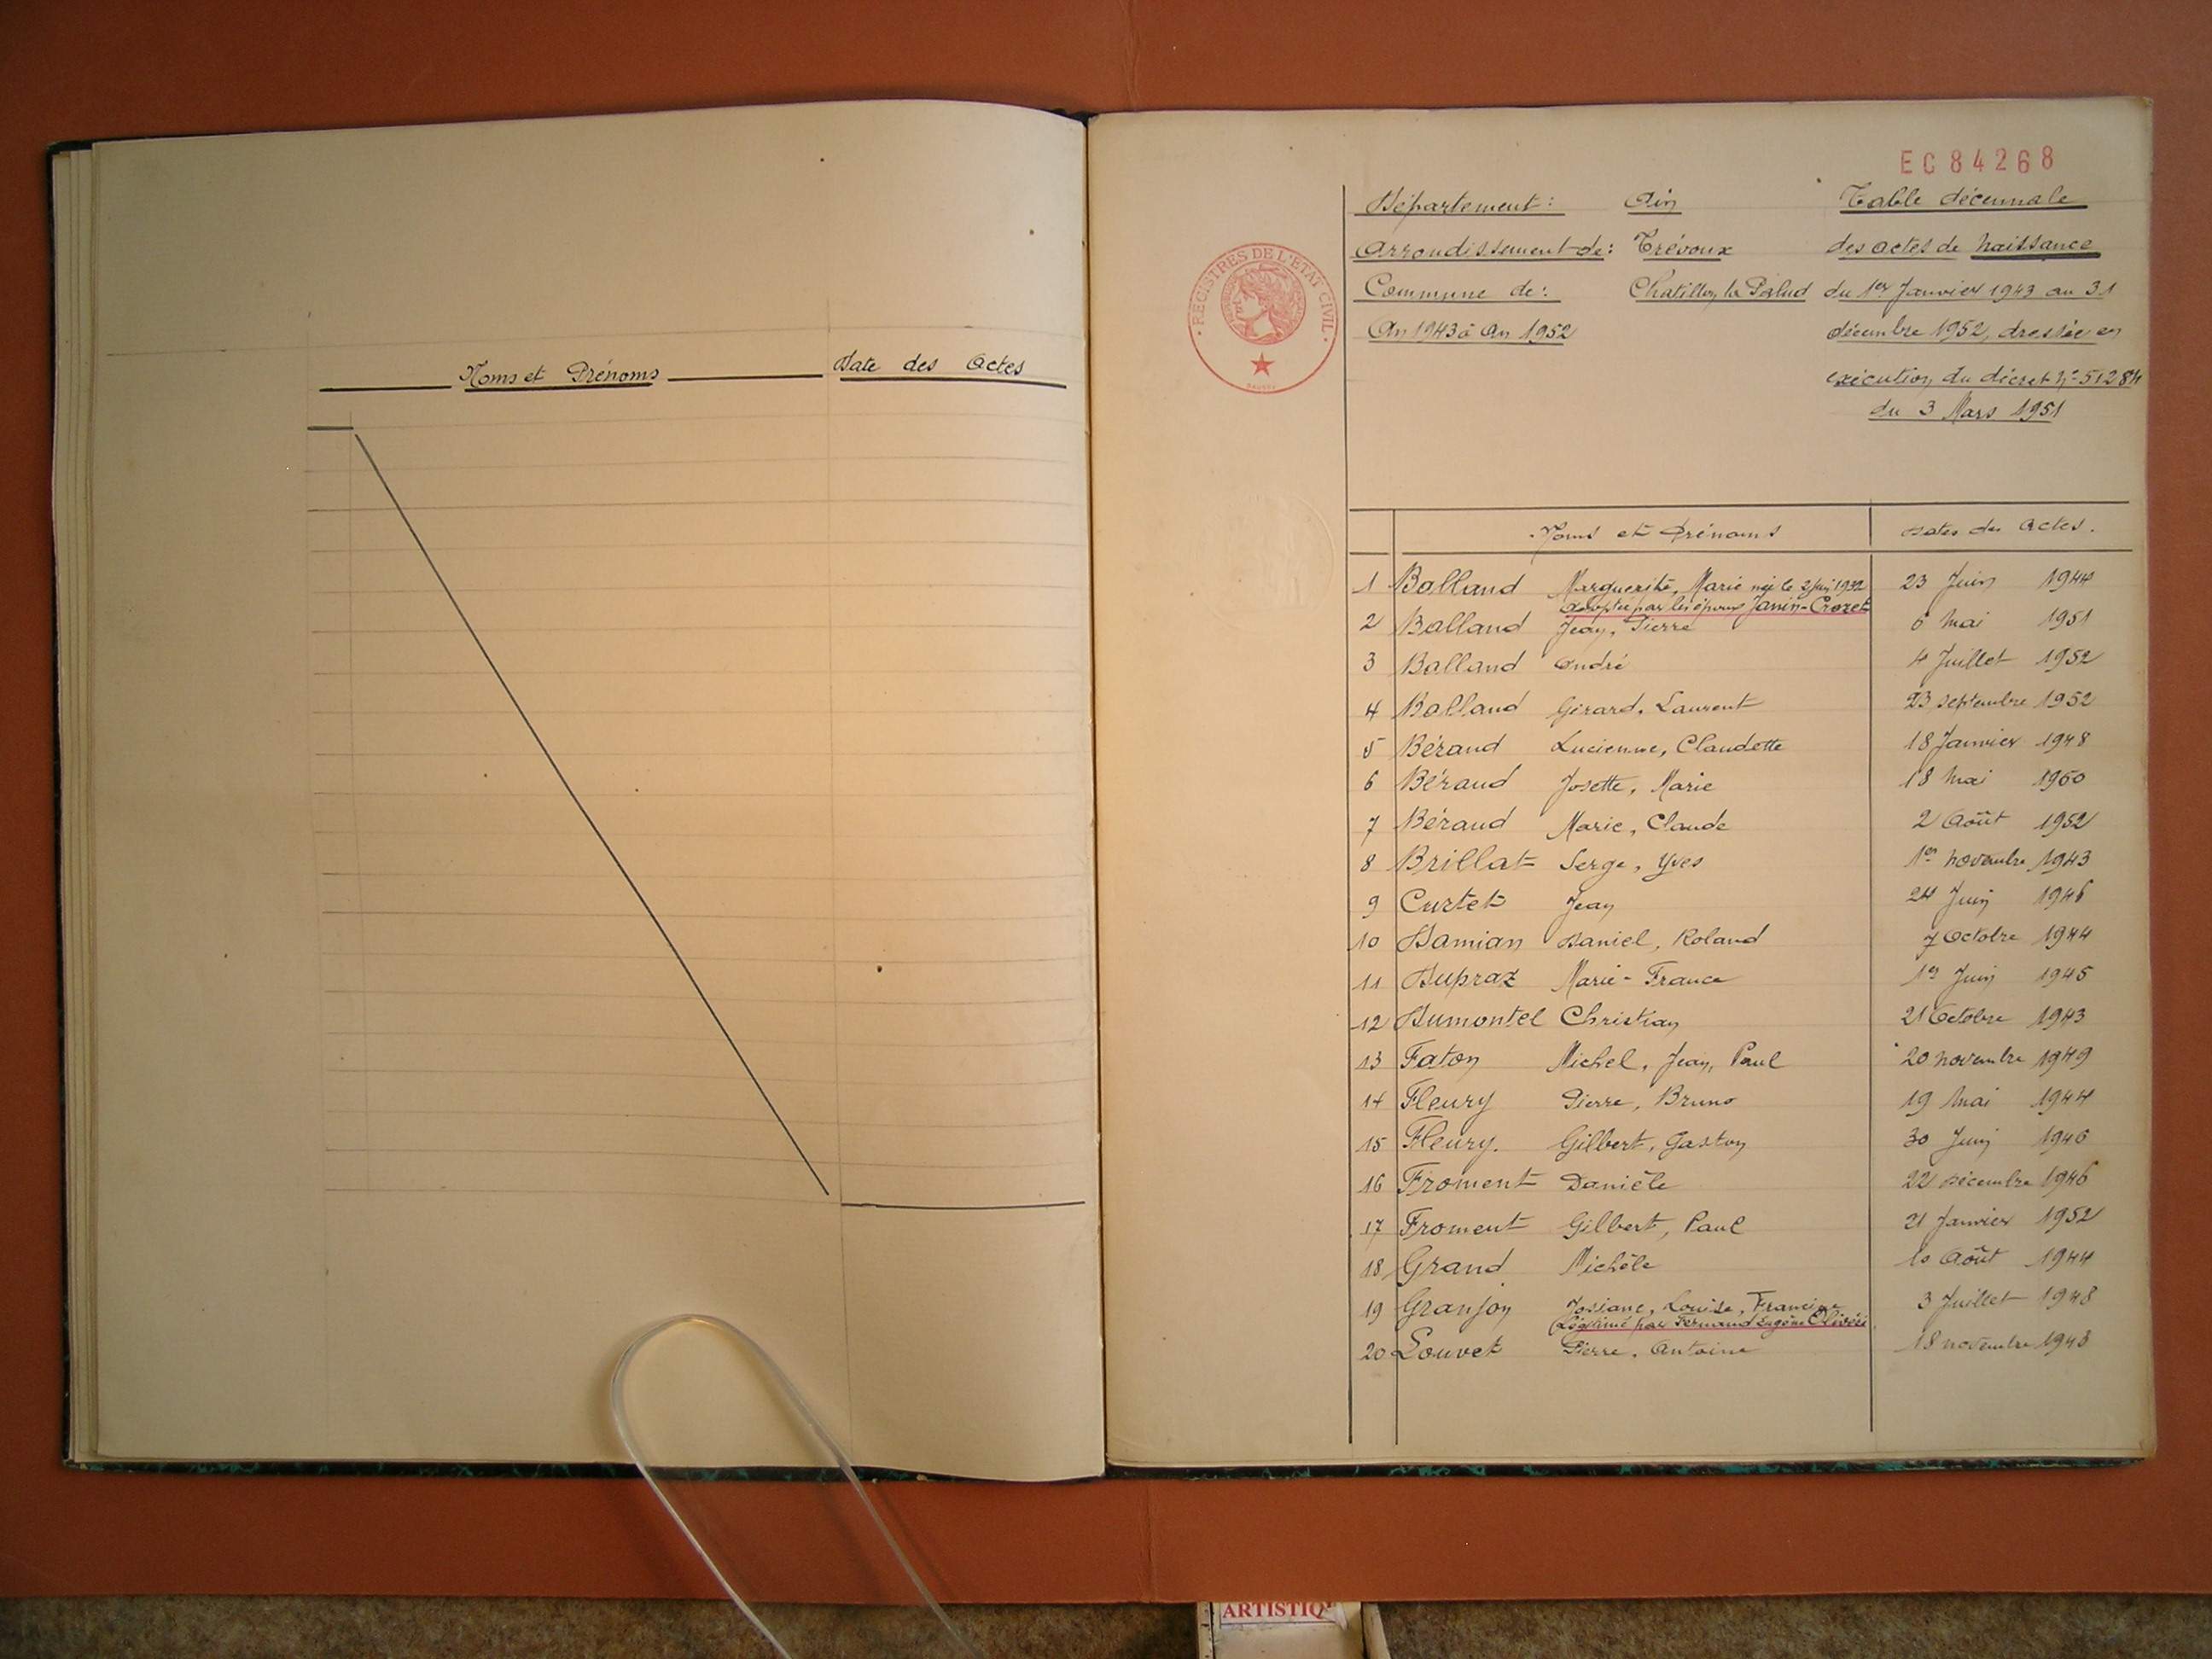 Noms et Prénoms Date des Actes
EC84268
REGISTRES DE L'ETAT CIVIL
Département: Ain Table décennale
Arrondissement de: Trévoux des actes de Naissance
Commune de: Chatillon la Palud du 1er Janvier 1943 au 31
An 1943 à An 1952 décembre 1952, dressée en
exécution du décret No 51284
du 3 Mars 1951
Noms et Prénoms Dates des Actes.
1 Balland Marguerite, Marie née le 2 Juin 1932 23 Juin 1944
adoptée par les époux Janin-Crozet
2 Balland Jean, Pierre 6 Mai 1951
3 Balland André 4 Juillet 1952
4 Balland Gérard, Laurent 23 septembre 1952
5 Béraud Lucienne, Claudette 18 Janvier 1948
6 Béraud Josette, Marie 18 Mai 1950
7 Béraud Marie, Claude 2 Août 1952
8 Brillat Serge, Yves 1er Novembre 1943
9 Curtet Jean 24 Juin 1946
10 Damian Daniel, Roland 7 Octobre 1944
11 Dupraz Marie-France 1er Juin 1945
12 Dumontel Christian 21 Octobre 1943
13 Faton Michel, Jean, Paul 20 Novembre 1949
14 Fleury Pierre, Bruno 19 Mai 1944
15 Fleury. Gilbert, Gaston 30 Juin 1946
16 Froment Danièle 22 Décembre 1946
17 Froment Gilbert, Paul 21 Janvier 1952
18 Grand Michèle 10 Août 1944
19 Granjon Josiane, Louise, Francine 3 Juillet 1948
(Légitimé par Fernand Eugène
20 Louvet Pierre, Antoine 18 novembre 1943
ARTISTIQ